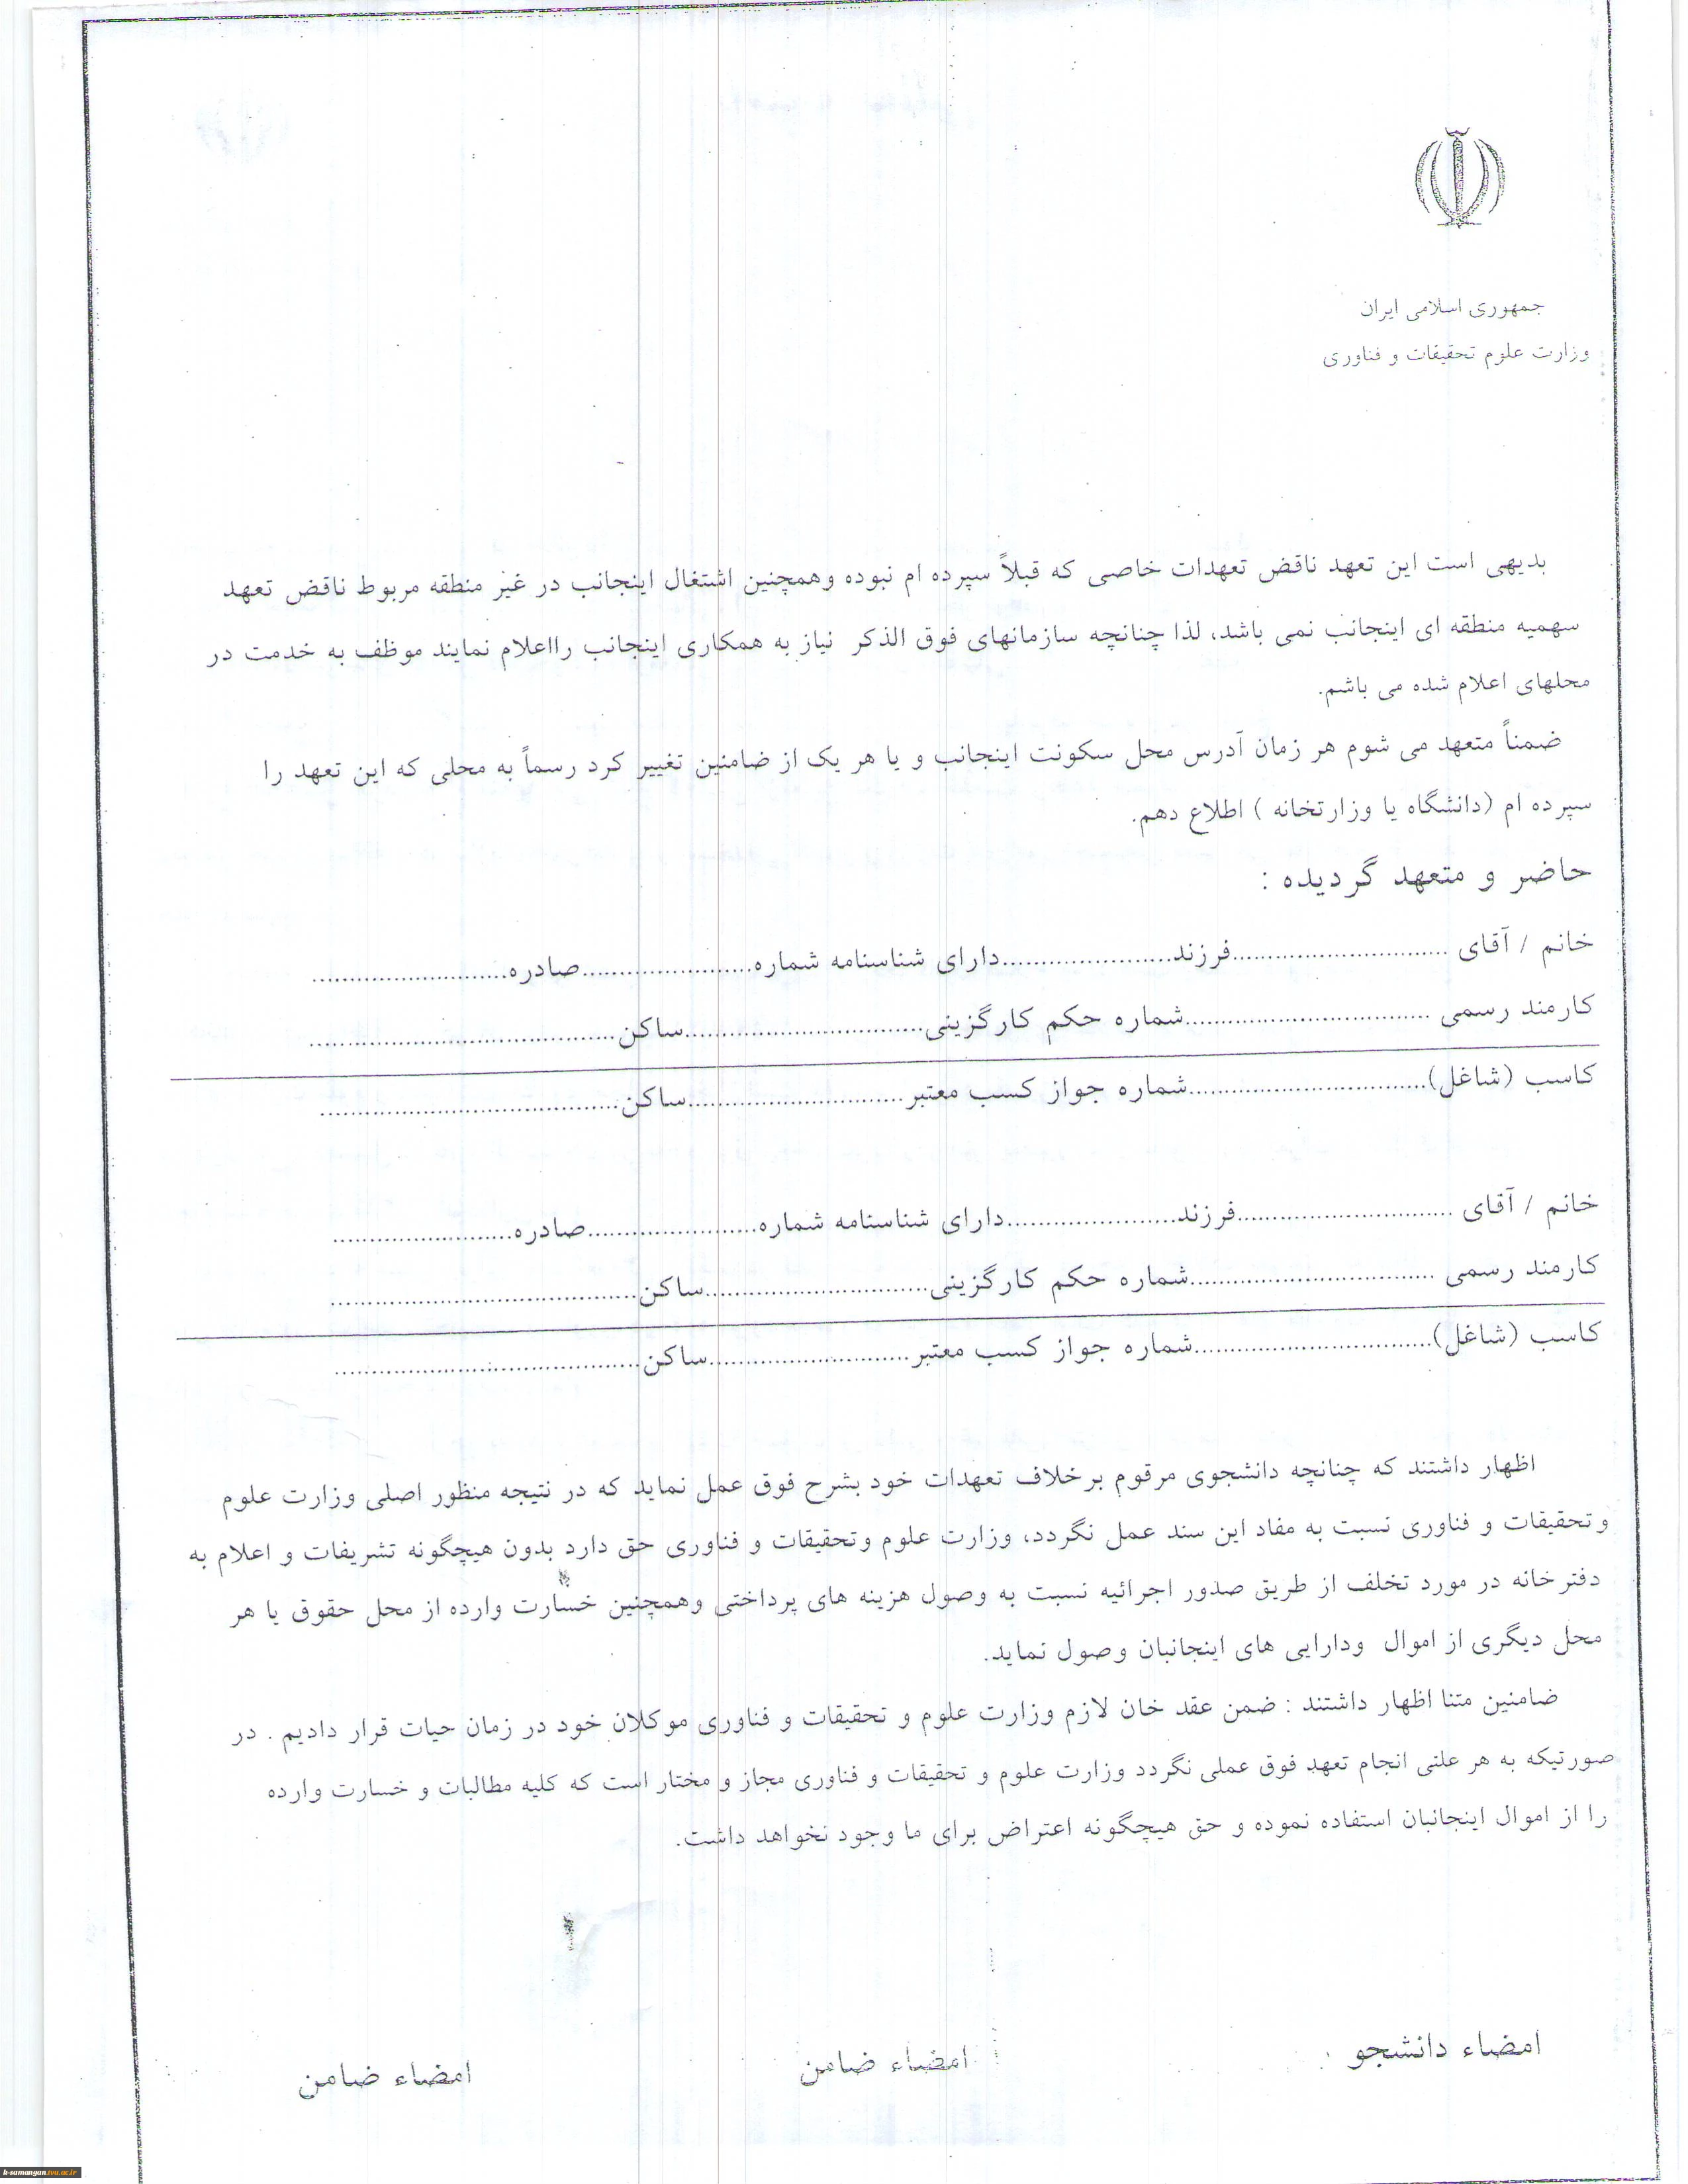 جمهوری اسلامی ایران
وزارت علوم تحقیقات و فناوری
بدیهی است این تعهد ناقض تعهدات خاصی که قبلاً سپرده ام نبوده وهمچنین اشتغال اینجانب در غیر منطقه مربوط ناقض تعهد
سهمیه منطقه ای اینجانب نمی باشد، لذا چنانچه سازمانهای فوق الذکر نیاز به همکاری اینجانب رااعلام نمایند موظف به خدمت در
محلهای اعلام شده می باشم.
ضمناً متعهد می شوم هر زمان آدرس محل سکونت اینجانب و یا هر یک از ضامنین تغییر کرد رسماً به محلی که این تعهد را
سپرده ام (دانشگاه یا وزارتخانه ) اطلاع دهم.
حاضر و متعهد گردیده :
خانم / آقای ..............................فرزند.......................دارای شناسنامه شماره.......................صادره...........................
کارمند رسمی .................................شماره حکم کارگزینی.................................ساکن..........................................
کاسب (شاغل).................................شماره جواز کسب معتبر..............................ساکن.........................................
خانم / آقای ..............................فرزند.......................دارای شناسنامه شماره.......................صادره.........................
کارمند رسمی .................................شماره حکم کارگزینی...............................ساکن..........................................
کاسب (شاغل).................................شماره جواز کسب معتبر............................ساکن..........................................
اظهار داشتند که چنانچه دانشجوی مرقوم برخلاف تعهدات خود بشرح فوق عمل نماید که در نتیجه منظور اصلی وزارت علوم
وتحقیقات و فناوری نسبت به مفاد این سند عمل نگردد، وزارت علوم وتحقیقات و فناوری حق دارد بدون هیچگونه تشریفات و اعلام به
دفترخانه در مورد تخلف از طریق صدور اجرائیه نسبت به وصول هزینه های پرداختی وهمچنین خسارت وارده از محل حقوق یا هر
محل دیگری از اموال ودارایی های اینجانبان وصول نماید.
ضامنین متنا اظهار داشتند : ضمن عقد خان لازم وزارت علوم و تحقیقات و فناوری موکلان خود در زمان حیات قرار دادیم . در
صورتیکه به هر علتی انجام تعهد فوق عملی نگردد وزارت علوم و تحقیقات و فناوری مجاز و مختار است که کلیه مطالبات و خسارت وارده
را از اموال اینجانبان استفاده نموده و حق هیچگونه اعتراض برای ما وجود نخواهد داشت.
امضاء دانشجو
امضاء ضامن
امضاء ضامن
k-samangan.tvu.ac.ir